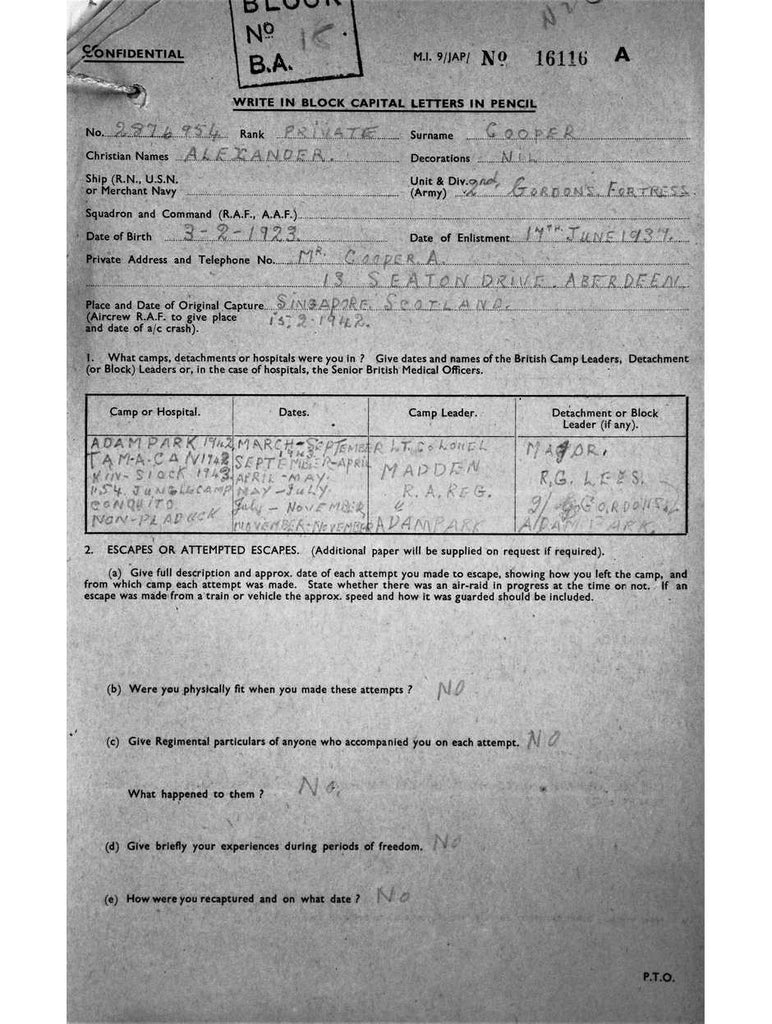 BLOCK
No 15.
B.A.
CONFIDENTIAL
M.I. 9/JAP/ No 16116 A
WRITE IN BLOCK CAPITAL LETTERS IN PENCIL
No. 2876954 Rank PRIVATE Surname COOPER
Christian Names ALEXANDER. Decorations NIL
Ship (R.N., U.S.N. or Merchant Navy
Unit & Div. (Army) 2nd GORDONS. FORTRESS.
Squadron and Command (R.A.F., A.A.F.)
Date of Birth 3-2-1923. Date of Enlistment 17TH JUNE 1937.
Private Address and Telephone No. MR. COOPER. A.
13 SEATON DRIVE. ABERDEEN
Place and Date of Original Capture SINGAPORE. SCOTLAND.
(Aircrew R.A.F. to give place 15.2.1942.
and date of a/c crash).
1. What camps, detachments or hospitals were you in ? Give dates and names of the British Camp Leaders, Detachment
(or Block) Leaders or, in the case of hospitals, the Senior British Medical Officers.
Camp or Hospital. Dates. Camp Leader. Detachment or Block
Leader (if any).
ADAM PARK 1942 MARCH-SEPTEMBER LT. COLONEL MAJOR.
TAM-A-CAN 1942 SEPTEMBER-APRIL 1943 MADDEN R.G. LEES.
KIN-SIOCK 1943 APRIL - MAY.
154. JUNGLE CAMP MAY - JULY. R.A. REG. 2/ GORDONS.
CONQUITO July - NOVEMBER "
NON-PLADUCK NOVEMBER-NOVEMBER ADAMPARK ADAM PARK.
2. ESCAPES OR ATTEMPTED ESCAPES. (Additional paper will be supplied on request if required).
(a) Give full description and approx. date of each attempt you made to escape, showing how you left the camp, and
from which camp each attempt was made. State whether there was an air-raid in progress at the time or not. If an
escape was made from a train or vehicle the approx. speed and how it was guarded should be included.
(b) Were you physically fit when you made these attempts ? NO
(c) Give Regimental particulars of anyone who accompanied you on each attempt. NO
What happened to them ? No.
(d) Give briefly your experiences during periods of freedom. No
(e) How were you recaptured and on what date ? No
P.T.O.